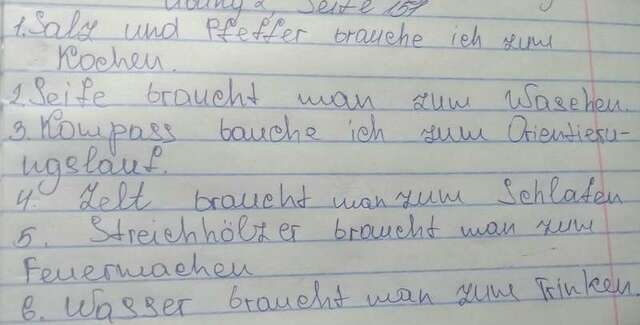 Übung 2, Seite 151
1. Salz und Pfeffer brauche ich zum
Kochen.
2. Seife braucht man zum Waschen.
3. Kompass bauche ich zum Orientieru-
ngslauf.
4. Zelt braucht man zum Schlafen
5. Streichhölzer braucht man zum
Feuermachen
6. Wasser braucht man zum Trinken.